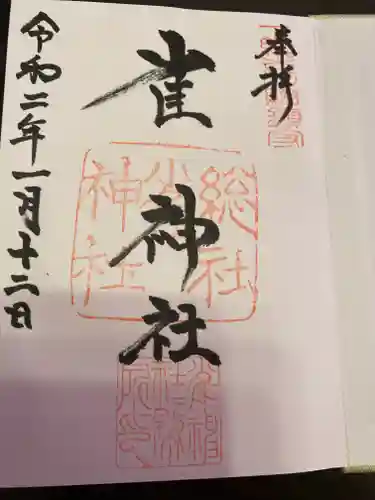 奉拝
雀神社
総社
雀
神社
令和二年一月十二日